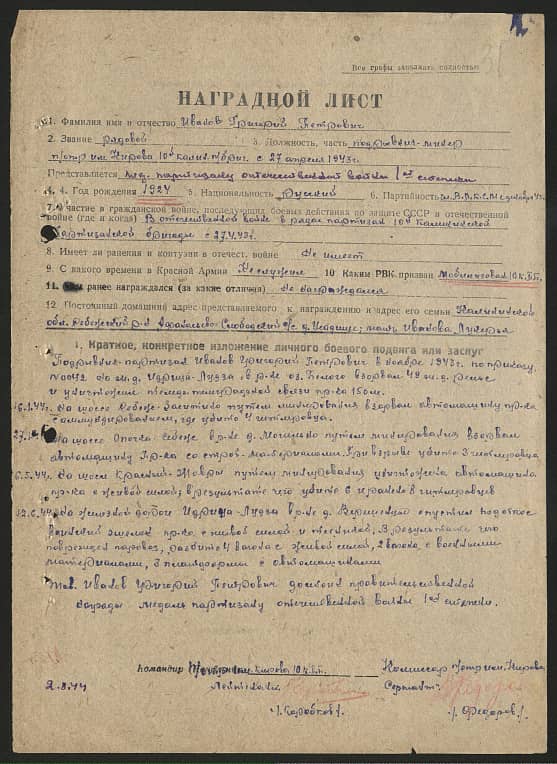 Все графы заполнять полностью
НАГРАДНОЙ ЛИСТ
1. Фамилия имя и отчество Иванов Григорий Петрович
2. Звание рядовой 3. Должность, часть подрывник-минер
п/отр им Кирова 10й калин. п/бриг. с 27 апреля 1943г.
Представляется мед. партизану отечественной войны 1ой степени
4. Год рождения 1924 5. Национальность Русский 6. Партийность
7. Участие в гражданской войне, последующих боевых действиях по защите СССР и отечественной
войне (где и когда) В отечественной войне в рядах партизан 10й Калининской
партизанской бригады с 27.4.43г.
8. Имеет ли ранения и контузии в отечест. войне Не имеет
9. С какого времени в Красной Армии Не служил 10 Каким РВК призван
11. Чем ранее награждался (за какие отличия) Не награждался
12 Постоянный домашний адрес представляемого к награждению и адрес его семьи Калининской
обл. Себежский р-н с/с д. мать Иванова Лукерья
I. Краткое, конкретное изложение личного боевого подвига или заслуг
Подрывник-партизан Иванов Григорий Петрович в ноябре 1943г. по приказу
на ж.д. Идрица-Лудза в р-не оз. Белого взорвал 48 ж.д. рельс
и уничтожил телеграфной связи пр-ка 150м.
На шоссе Себеж- путем минирования взорвал автомашину пр-ка
с где убито 4 гитлеровца.
На шоссе Опочка-Себеж в р-не д. Могильно путем минирования взорвал
автомашину пр-ка со строй-материалами. При взрыве убито 3 гитлеровца
6.5.44г. На шоссе Красный- путем минирования уничтожена автомашина
пр-ка с живой силой; в результате чего убито 6 и ранено 8 гитлеровцев
12.6.44г. На железной дороге Идрица-Лудза в р-не д. спустил под откос
воинский эшелон пр-ка с живой силой и техникой; В результате чего
поврежден паровоз, разбито вагона с живой силой, 2 вагона с военными
материалами, платформы с автомашинами
Тов. Иванов Григорий Петрович достоин правительственной
награды медаль партизану отечественной войны 1ой степени.
Командир Кирова 10 к.п.б. Комиссар п/отр им. Кирова
2.8.44 Лейтенант Сержант
/. Федоров/.